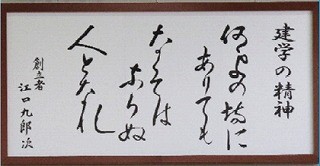 建学の精神
の場に
ありても
なくては
ならぬ
人となれ
創立者
江口九郎次